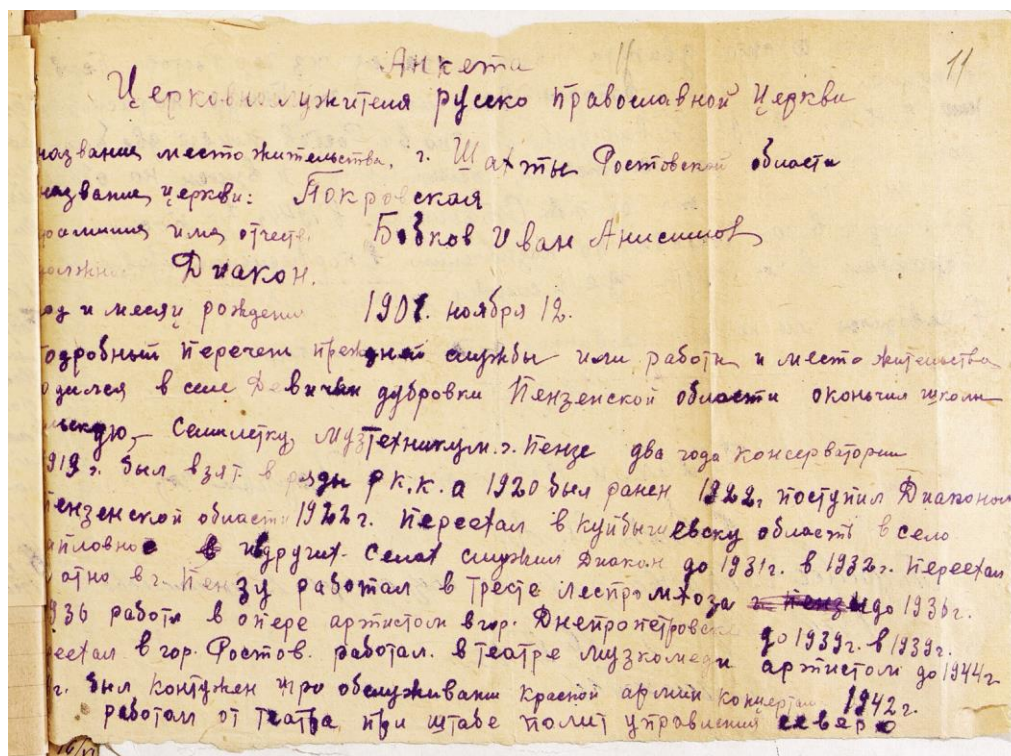 11
Анкета
Церковнослужителя русско православной Церкви
название место жительства. г. Шахты Ростовской области
название церкви: Покровская
фамилия имя отчеств. Бобков Иван Анисимов
должнос. Диакон.
од и месяц рождения 1901. ноября 12.
одробный перечен прежней службы или работы и место жительства
одился в селе Девичьи дубровки Пензенской области окончил школу
льскую, семилетку, музтехникум. г. Пензе два года консерватории
919 г. был взят в ряды р к.к.а 1920 был ранен 1922 г поступил Диаконом
ензенской области 1922 г. переехал в Куйбышевску область в село
в других селах служил Диакон до 1931г. в 1932 г. переехал
атно в г. Пензу работал в тресте леспромхоза до 1936 г.
936 работа в опере артистом в гор. Днепропетровске до 1939г. в 1939г.
реехал в гор. Ростов. работал. в театре музкомеди артистом до 1944г
г. был контужен при обслуживании красной армии концертам 1942 г.
работал от театра при штабе полит управления северо